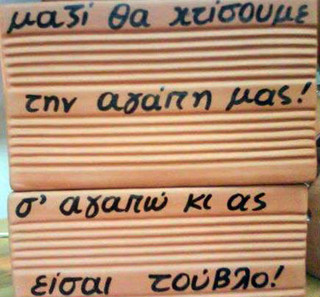 μαζί θα χτίσουμε
την αγάπη μας!
σ' αγαπώ κι ας
είσαι τούβλο!